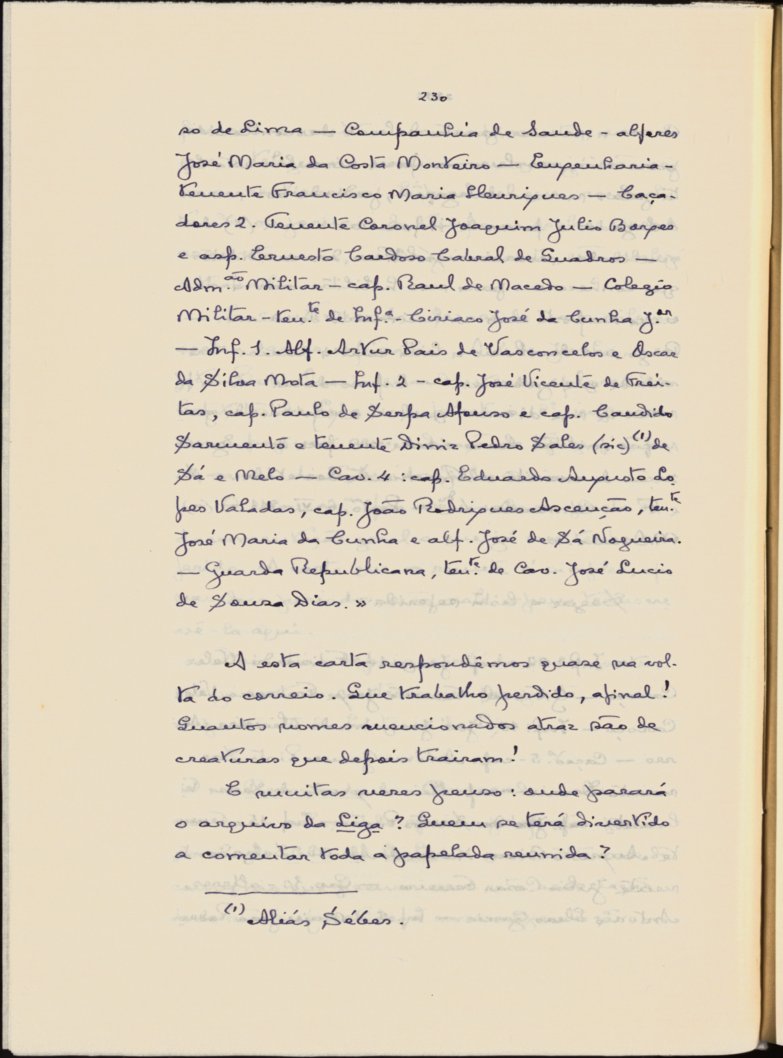 230
so de Lima — Companhia de Saude - alferes
José Maria da Costa Monteiro — Engenharia -
tenente Francisco Maria Henriques — Caça-
dores 2. Tenente Coronel Joaquim Julio Borges
e asp. Ernesto Cardoso Cabral de Quadros —
Adm.ão Militar - cap. Raul de Macedo — Colegio
Militar - ten.te de Inf.a - Ciriaco José da Cunha J.or
— Inf. 1. Alf. Artur Pais de Vasconcelos e Oscar
da Silva Mota — Inf. 2 - cap. José Vicente de Frei-
tas, cap. Paulo de Serpa Afonso e cap. Candido
Sarmento e tenente Diniz Pedro Sales (sic) (1) de
Sá e Melo — Cav. 4 : cap. Eduardo Augusto Lo-
pes Valadas, cap. João Rodrigues Ascenção, ten.te
José Maria da Cunha e alf. José de Sá Nogueira.
— Guarda Republicana, ten.te de Cav. José Lucio
de Souza Dias. »
A esta carta respondêmos quase na vol-
ta do correio. Que trabalho perdido, afinal!
Quantos nomes mencionados atraz são de
creaturas que depois trairam!
E muitas vezes penso: onde parará
o arquivo da Liga? Quem se terá divertido
a comentar toda a papelada reunida?
(1) Aliás Sébes.